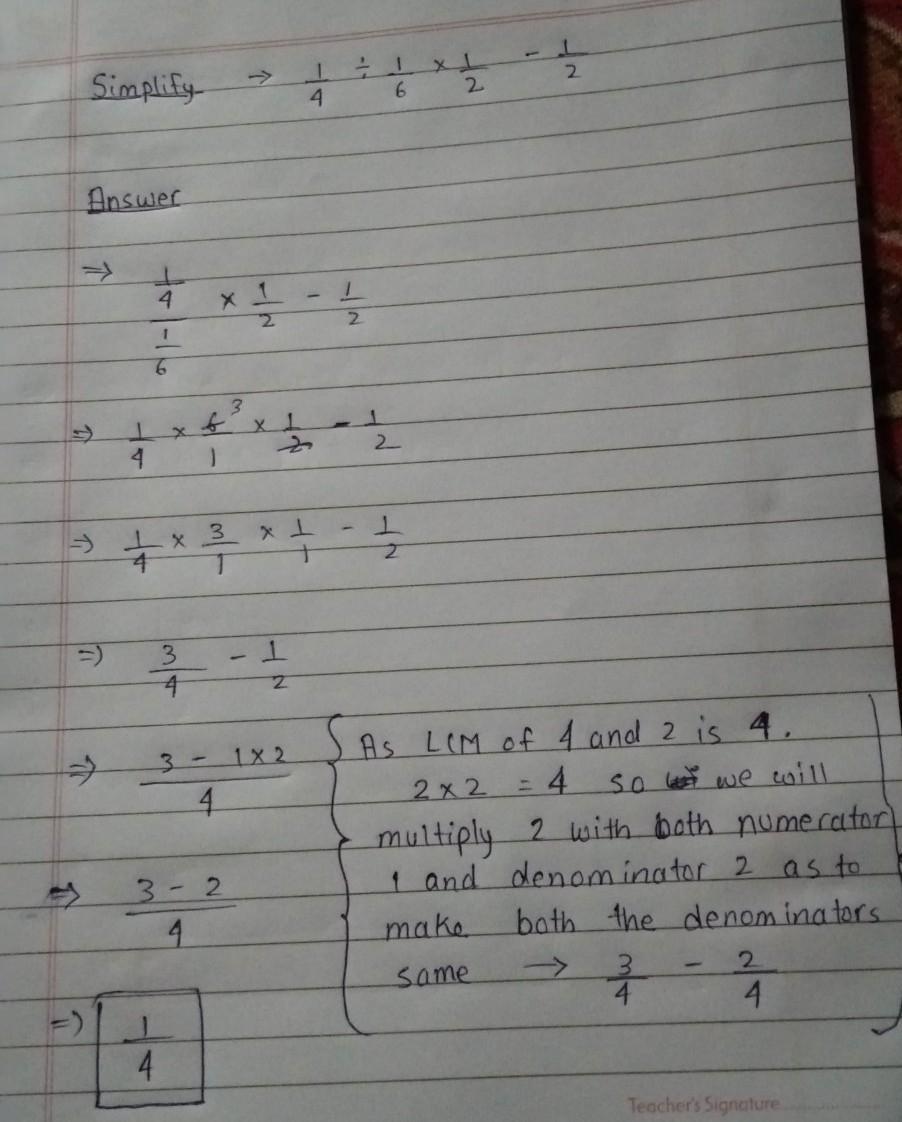 Simplify → 1/4 ÷ 1/6 × 1/2 - 1/2
Answer
⇒ (1/4)/(1/6) × 1/2 - 1/2
⇒ 1/4 × 6³/1 × 1/2 - 1/2
⇒ 1/4 × 3/1 × 1/1 - 1/2
⇒ 3/4 - 1/2
⇒ (3 - 1×2)/4
⇒ (3 - 2)/4
⇒ 1/4
{ As LCM of 4 and 2 is 4.
2 × 2 = 4 so we will
multiply 2 with both numerator
1 and denominator 2 as to
make both the denominators
same → 3/4 - 2/4 }
Teacher's Signature